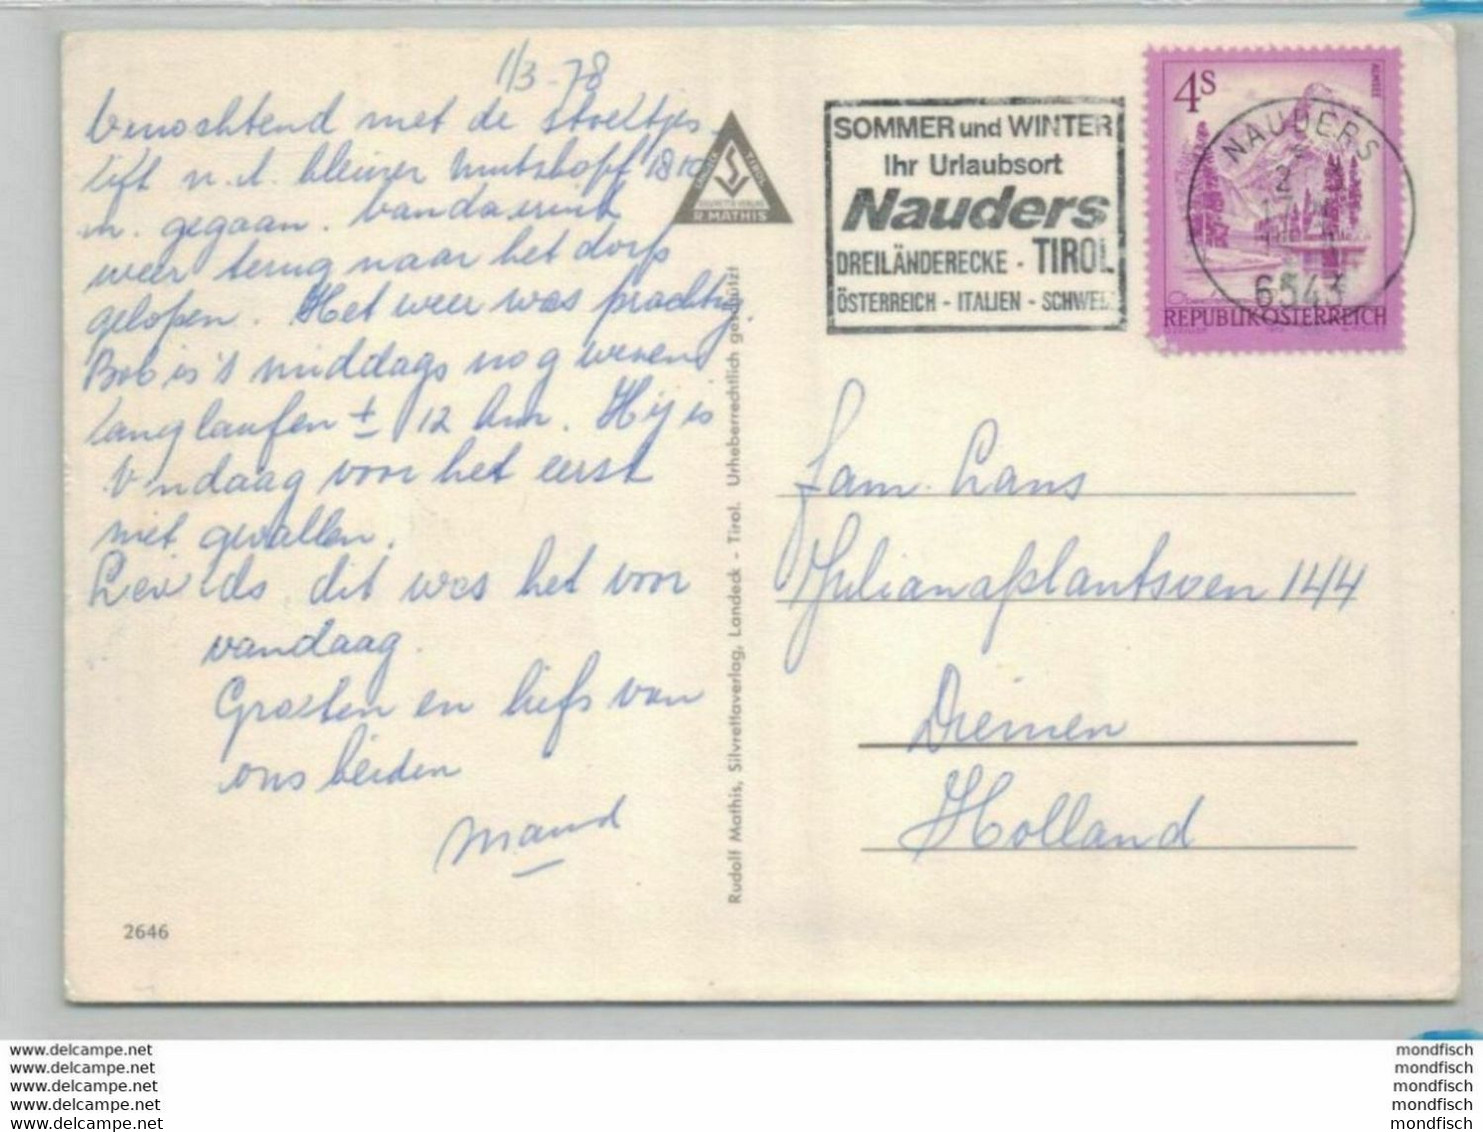 1/3-78
Vanochtend met de stoeltjes
lift n.d. kleiner Mutzkopf 1810
m. gegaan. Vandaaruit
weer terug naar het dorp
gelopen. Het weer was prachtig.
Bob is 's middags nog wezen
langlaufen ± 12 km. Hij is
Vandaag voor het eerst
niet gevallen.
Lieve lds dit was het voor
vandaag.
Groeten en liefs van
ons beiden
2646
R. MATHIS
Rudolf Mathis, Silvrettaverlag, Landeck - Tirol. Urheberrechtlich geschützt!
SOMMER und WINTER
Ihr Urlaubsort
Nauders
DREILÄNDERECKE - TIROL
ÖSTERREICH - ITALIEN - SCHWEI
4S
ALMSEE
NAUDERS
6543
REPUBLIK ÖSTERREICH
Fam. Lans
Julianaplantsoen 144
Diemen
Holland
www.delcampe.net
www.delcampe.net
www.delcampe.net
www.delcampe.net
www.delcampe.net
mondfisch
mondfisch
mondfisch
mondfisch
mondfisch